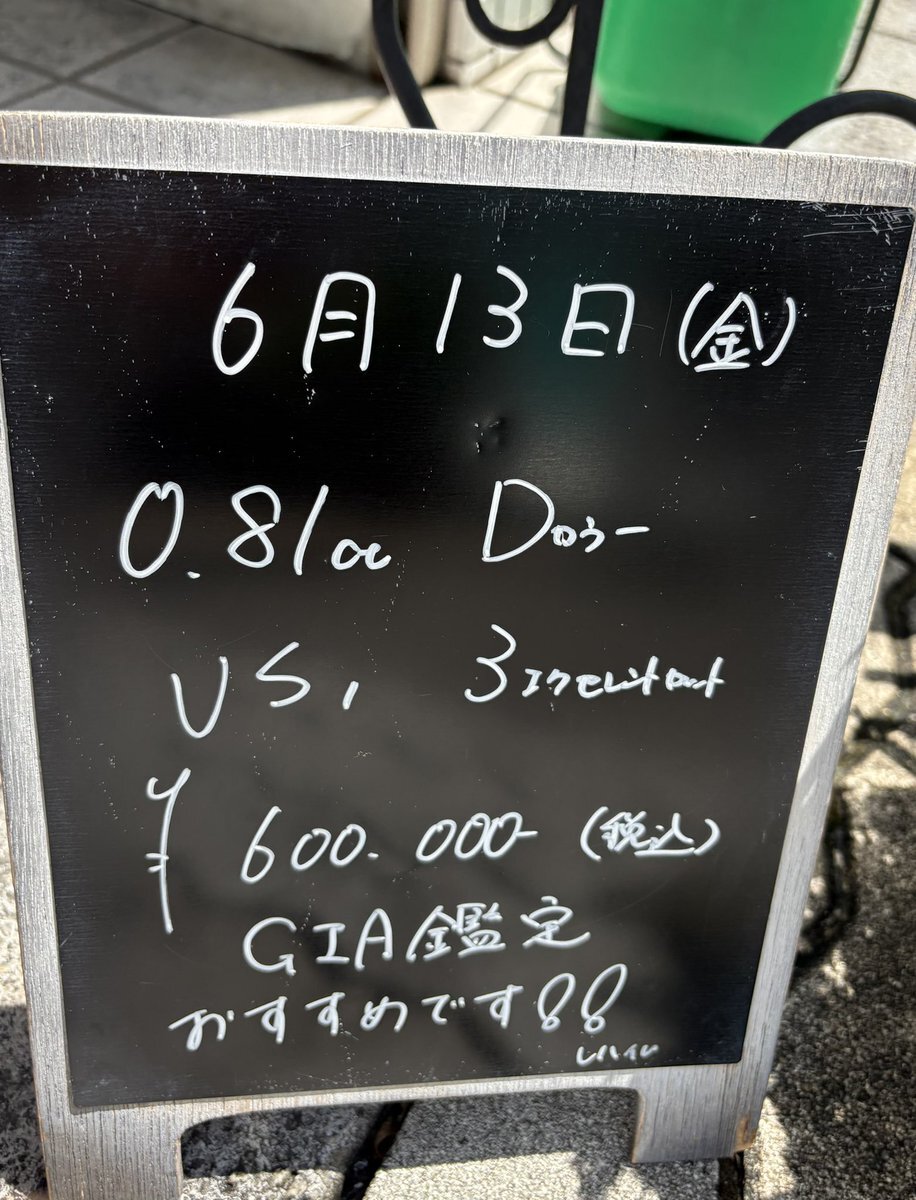 6月13日(金)
0.81ct Dカラー
VS1 3エクセレントカット
¥600.000-(税込)
GIA鑑定
おすすめです!!